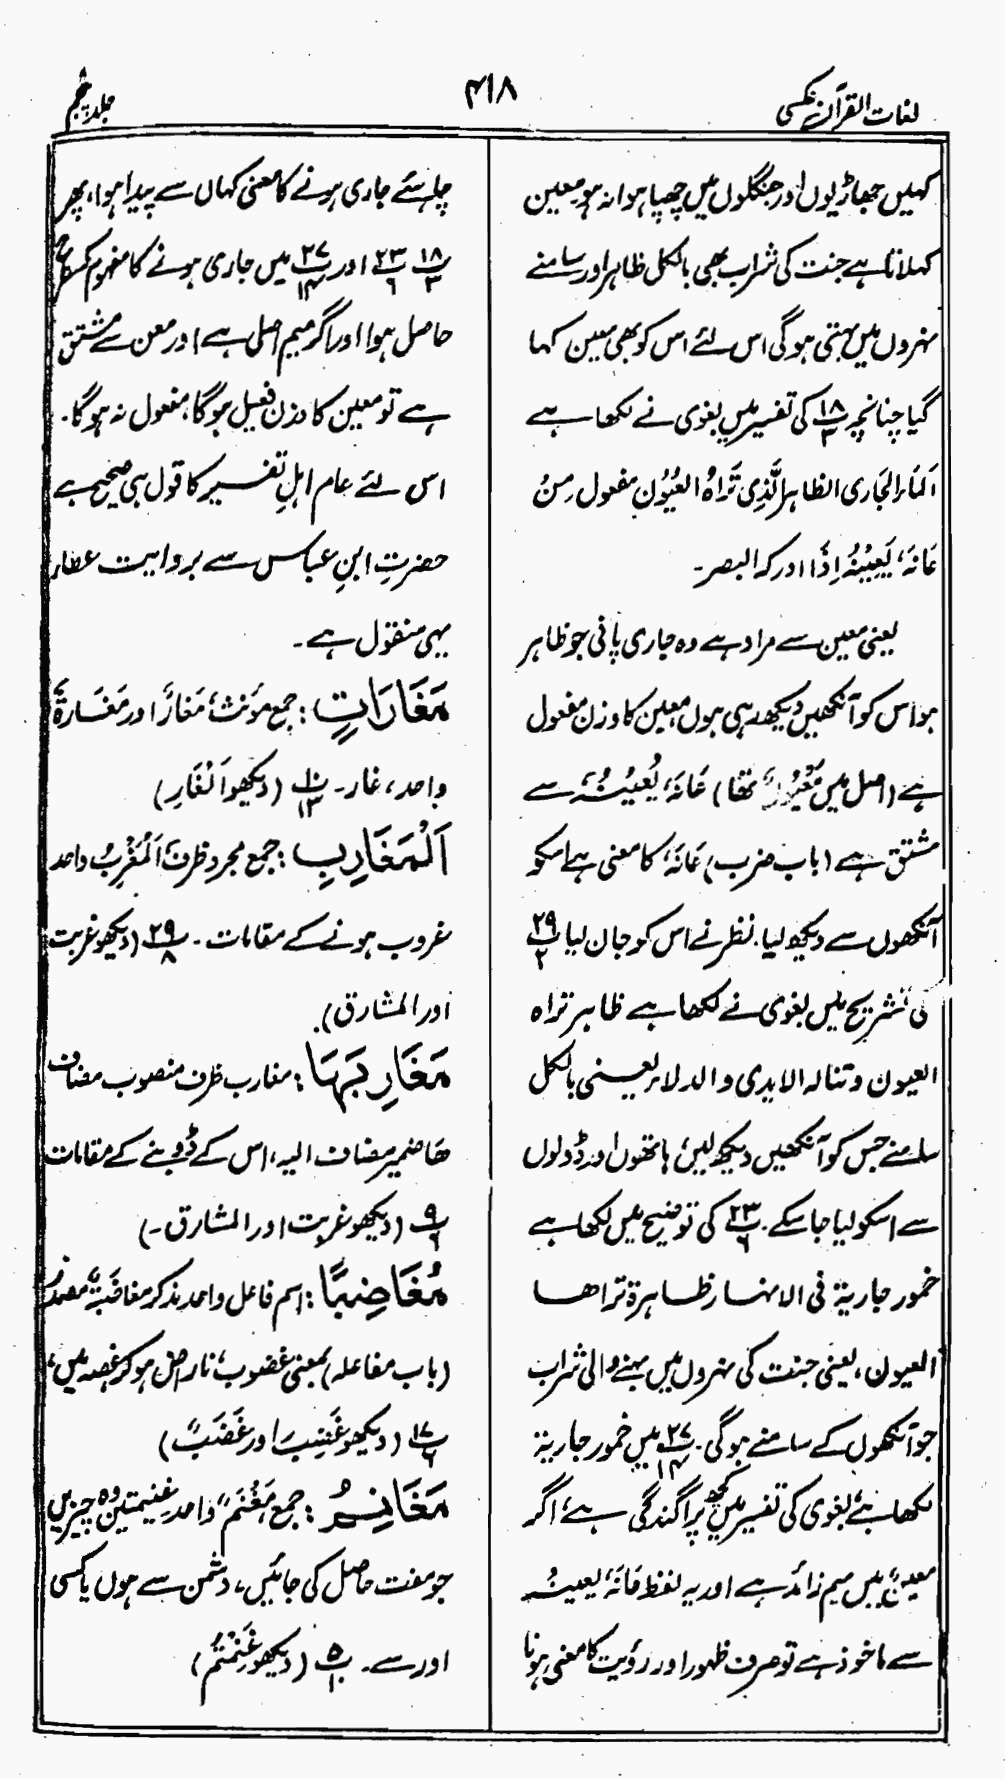 لغات القرآن عکسی
۴۱۸
جلد پنجم
کہیں جھاڑیوں اور جنگلوں میں چھپا ہوا نہ ہو معین
کہلاتا ہے جنت کی شراب بھی بالکل ظاہر اور سامنے
نہروں میں بہتی ہوگی اس لئے اس کو بھی معین کہا
گیا چنانچہ پ۱۸/۳ کی تفسیر میں بغوی نے لکھا ہے
اَلمَاءُ الجَاری الظاہر الَّذِی تَرَاہُ العُیُوْن مفعول مِنْ
عَانَہٗ یَعِیْنُہٗ اِذَا ادرکہ البصر۔
یعنی معین سے مراد ہے وہ جاری پانی جو ظاہر
ہو اس کو آنکھیں دیکھ رہی ہوں، معین کا وزن مفعول
ہے (اصل میں مَعْیُوْنٌ تھا) عَانَہٗ، یَعِیْنُہٗ سے
مشتق ہے (باب ضرب) عَانَہٗ کا معنی ہے اسکو
آنکھوں سے دیکھ لیا۔ نظر نے اس کو جان لیا پ۲۹/۲
کی تشریح میں بغوی نے لکھا ہے ظاہر تراہ
العیون وتنالہ الایدی والدلاء یعنی بالکل
سامنے جس کو آنکھیں دیکھ لیں، ہاتھوں اور ڈولوں
سے اسکو لیا جاسکے۔ پ۲۳/۶ کی توضیح میں لکھا ہے
خمور جاریة فی الانہار ظاہرة تراھا
العیون، یعنی جنت کی نہروں میں بہنے والی شراب
جو آنکھوں کے سامنے ہوگی۔ پ۲۷/۱۴ میں خمور جاریة
لکھا ہے، بغوی کی تفسیر میں کچھ پراگندگی ہے، اگر
معین میں میم زائد ہے اور یہ لفظ عَانَہٗ، یعینُہٗ
سے ماخوذ ہے تو صرف ظہور اور رؤیت کا معنی ہونا
چاہئے جاری ہونے کا معنی کہاں سے پیدا ہوا، پھر
پ۱۸/۳ پ۲۳/۶ اور پ۲۷/۱۴ میں جاری ہونے کا مفہوم کس طرح
حاصل ہوا اور اگر میم اصلی ہے اور معن سے مشتق
ہے تو معین کا وزن فعیل ہوگا، مفعول نہ ہوگا۔
اس لئے عام اہلِ تفسیر کا قول ہی صحیح ہے
حضرتِ ابنِ عباس سے بروایت عطار
یہی منقول ہے۔
مَغَارَاتٍ: جمع مؤنث، مَغَارٌ اور مَغَارَۃٌ
واحد، غار۔ پ۱۰/۱۳ (دیکھو اَلْغَارِ)
اَلْمَغَارِبِ: جمع مجرد ظرف، اَلْمَغْرِبُ واحد
غروب ہونے کے مقامات۔ پ۲۹/۸ (دیکھو غربت
اور المشارق)۔
مَغَارِبَہَا: مغارب ظرف منصوب مضاف
ھا ضمیر مضاف الیہ، اس کے ڈوبنے کے مقامات
پ۹/۶ (دیکھو غربت اور المشارق۔)
مُغَاضِبًا: اسم فاعل واحد مذکر مغاضَبَۃٌ مصدر
(باب مفاعلہ) بمعنی غضوب، ناراض ہو کر غصہ میں،
پ۱۷/۶ (دیکھو غَضِبَ اور غَضَبٌ)
مَغَانِمُ: جمع، مَغْنَمٌ واحد غنیمتیں وہ چیزیں
جو مفت حاصل کی جائیں، دشمن سے ہوں یا کسی
اور سے۔ پ۵/۱۰ (دیکھو غَنِمْتُمْ)